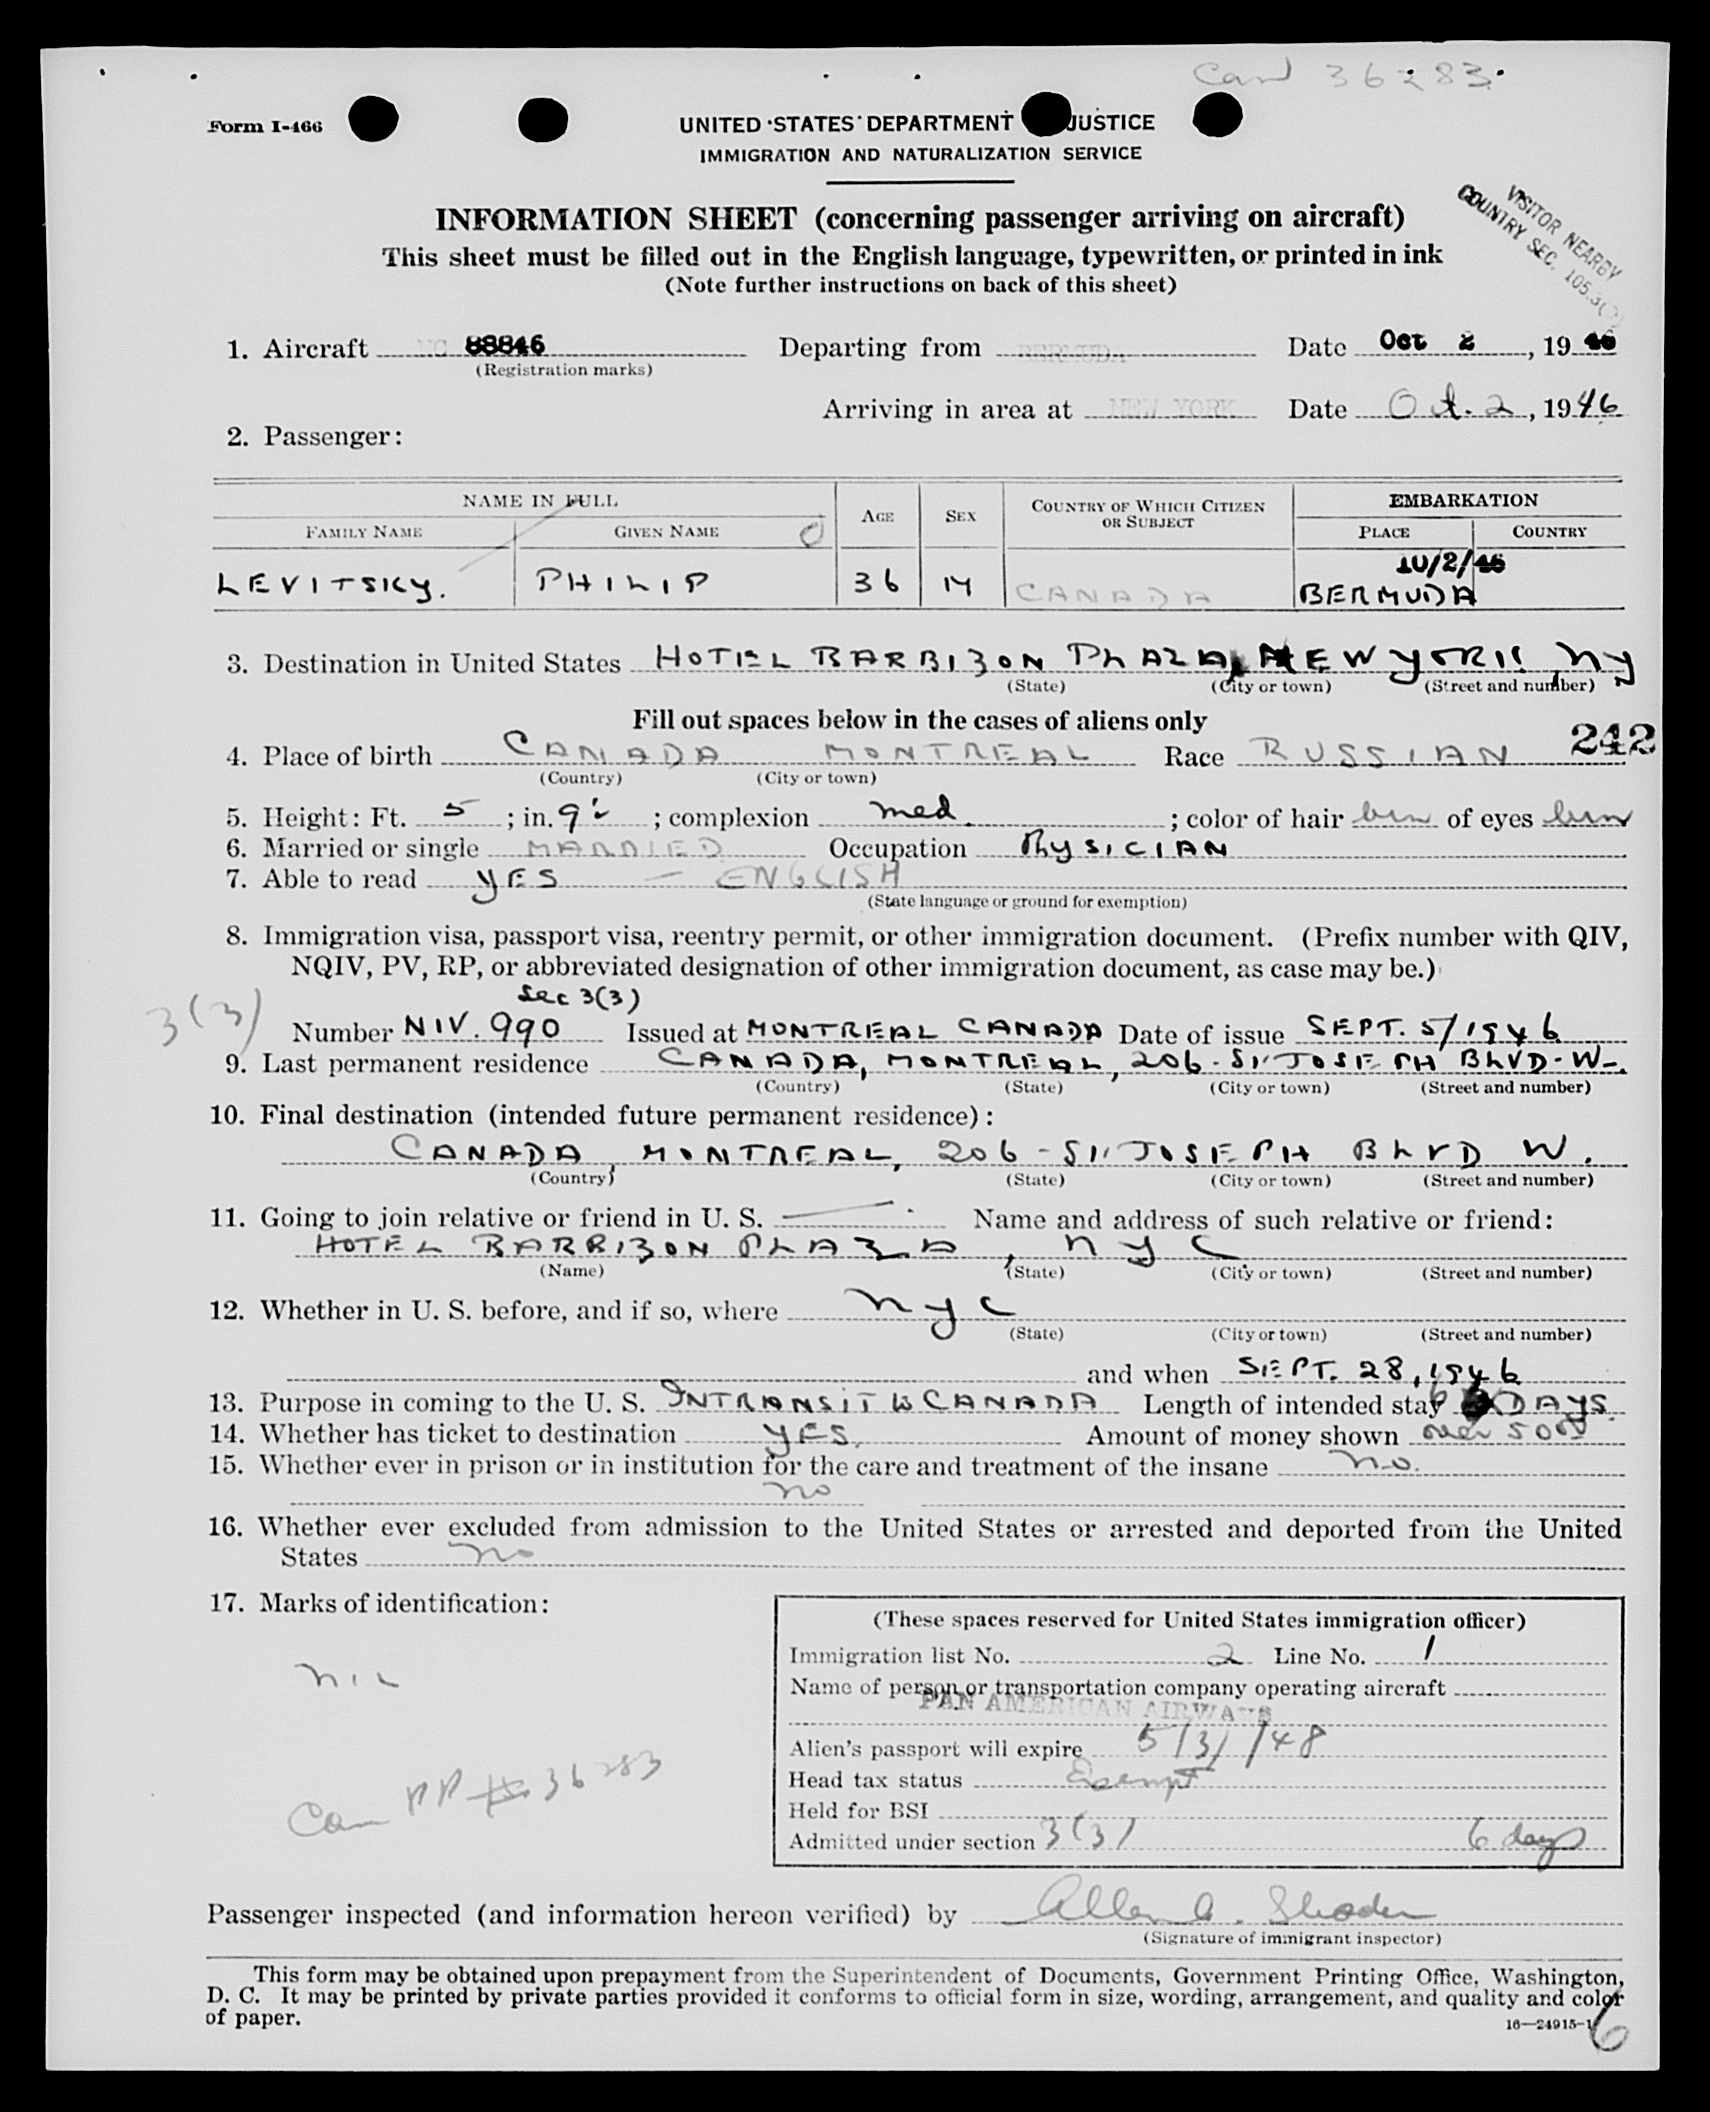 Can 36283
Form I-466
UNITED STATES DEPARTMENT JUSTICE
IMMIGRATION AND NATURALIZATION SERVICE
VISITOR NEARBY
COUNTRY SEC. 105.3(
INFORMATION SHEET (concerning passenger arriving on aircraft)
This sheet must be filled out in the English language, typewritten, or printed in ink
(Note further instructions on back of this sheet)
1. Aircraft NC 88846 Departing from BERMUDA Date Oct 2, 1946
(Registration marks)
Arriving in area at NEW YORK Date Oct. 2, 1946
2. Passenger:
NAME IN FULL AGE SEX COUNTRY OF WHICH CITIZEN OR SUBJECT EMBARKATION
FAMILY NAME GIVEN NAME PLACE COUNTRY
10/2/46
LEVITSKY. PHILIP 36 M CANADA BERMUDA
3. Destination in United States HOTEL BARBIZON PLAZA, NEW YORK, NY
(State) (City or town) (Street and number)
Fill out spaces below in the cases of aliens only
242
4. Place of birth CANADA MONTREAL Race RUSSIAN
(Country) (City or town)
5. Height: Ft. 5; in. 9 ; complexion med.; color of hair brn of eyes brn
6. Married or single MARRIED Occupation PHYSICIAN
7. Able to read YES – ENGLISH
(State language or ground for exemption)
8. Immigration visa, passport visa, reentry permit, or other immigration document. (Prefix number with QIV,
NQIV, PV, RP, or abbreviated designation of other immigration document, as case may be.)
Sec 3(3)
3(3)
Number NIV. 990 Issued at MONTREAL CANADA Date of issue SEPT. 5/1946
9. Last permanent residence CANADA, MONTREAL, 206 - ST JOSEPH BLVD - W.
(Country) (State) (City or town) (Street and number)
10. Final destination (intended future permanent residence):
CANADA, MONTREAL, 206 - ST JOSEPH BLVD W.
(Country) (State) (City or town) (Street and number)
11. Going to join relative or friend in U. S. — Name and address of such relative or friend:
HOTEL BARBIZON PLAZA, NYC
(Name) (State) (City or town) (Street and number)
12. Whether in U. S. before, and if so, where NYC
(State) (City or town) (Street and number)
and when SEPT. 28, 1946
13. Purpose in coming to the U. S. INTRANSIT to CANADA Length of intended stay 6 DAYS.
14. Whether has ticket to destination YES. Amount of money shown over 500
15. Whether ever in prison or in institution for the care and treatment of the insane no.
no
16. Whether ever excluded from admission to the United States or arrested and deported from the United
States no
17. Marks of identification:
nil
Can PP # 36283
(These spaces reserved for United States immigration officer)
Immigration list No. 2 Line No. 1
Name of person or transportation company operating aircraft
PAN AMERICAN AIRWAYS
Alien's passport will expire 5/31/48
Head tax status Exempt
Held for BSI
Admitted under section 3(3) 6 days
Passenger inspected (and information hereon verified) by Allen A.
(Signature of immigrant inspector)
This form may be obtained upon prepayment from the Superintendent of Documents, Government Printing Office, Washington,
D. C. It may be printed by private parties provided it conforms to official form in size, wording, arrangement, and quality and color
of paper.
16—24915-1
6